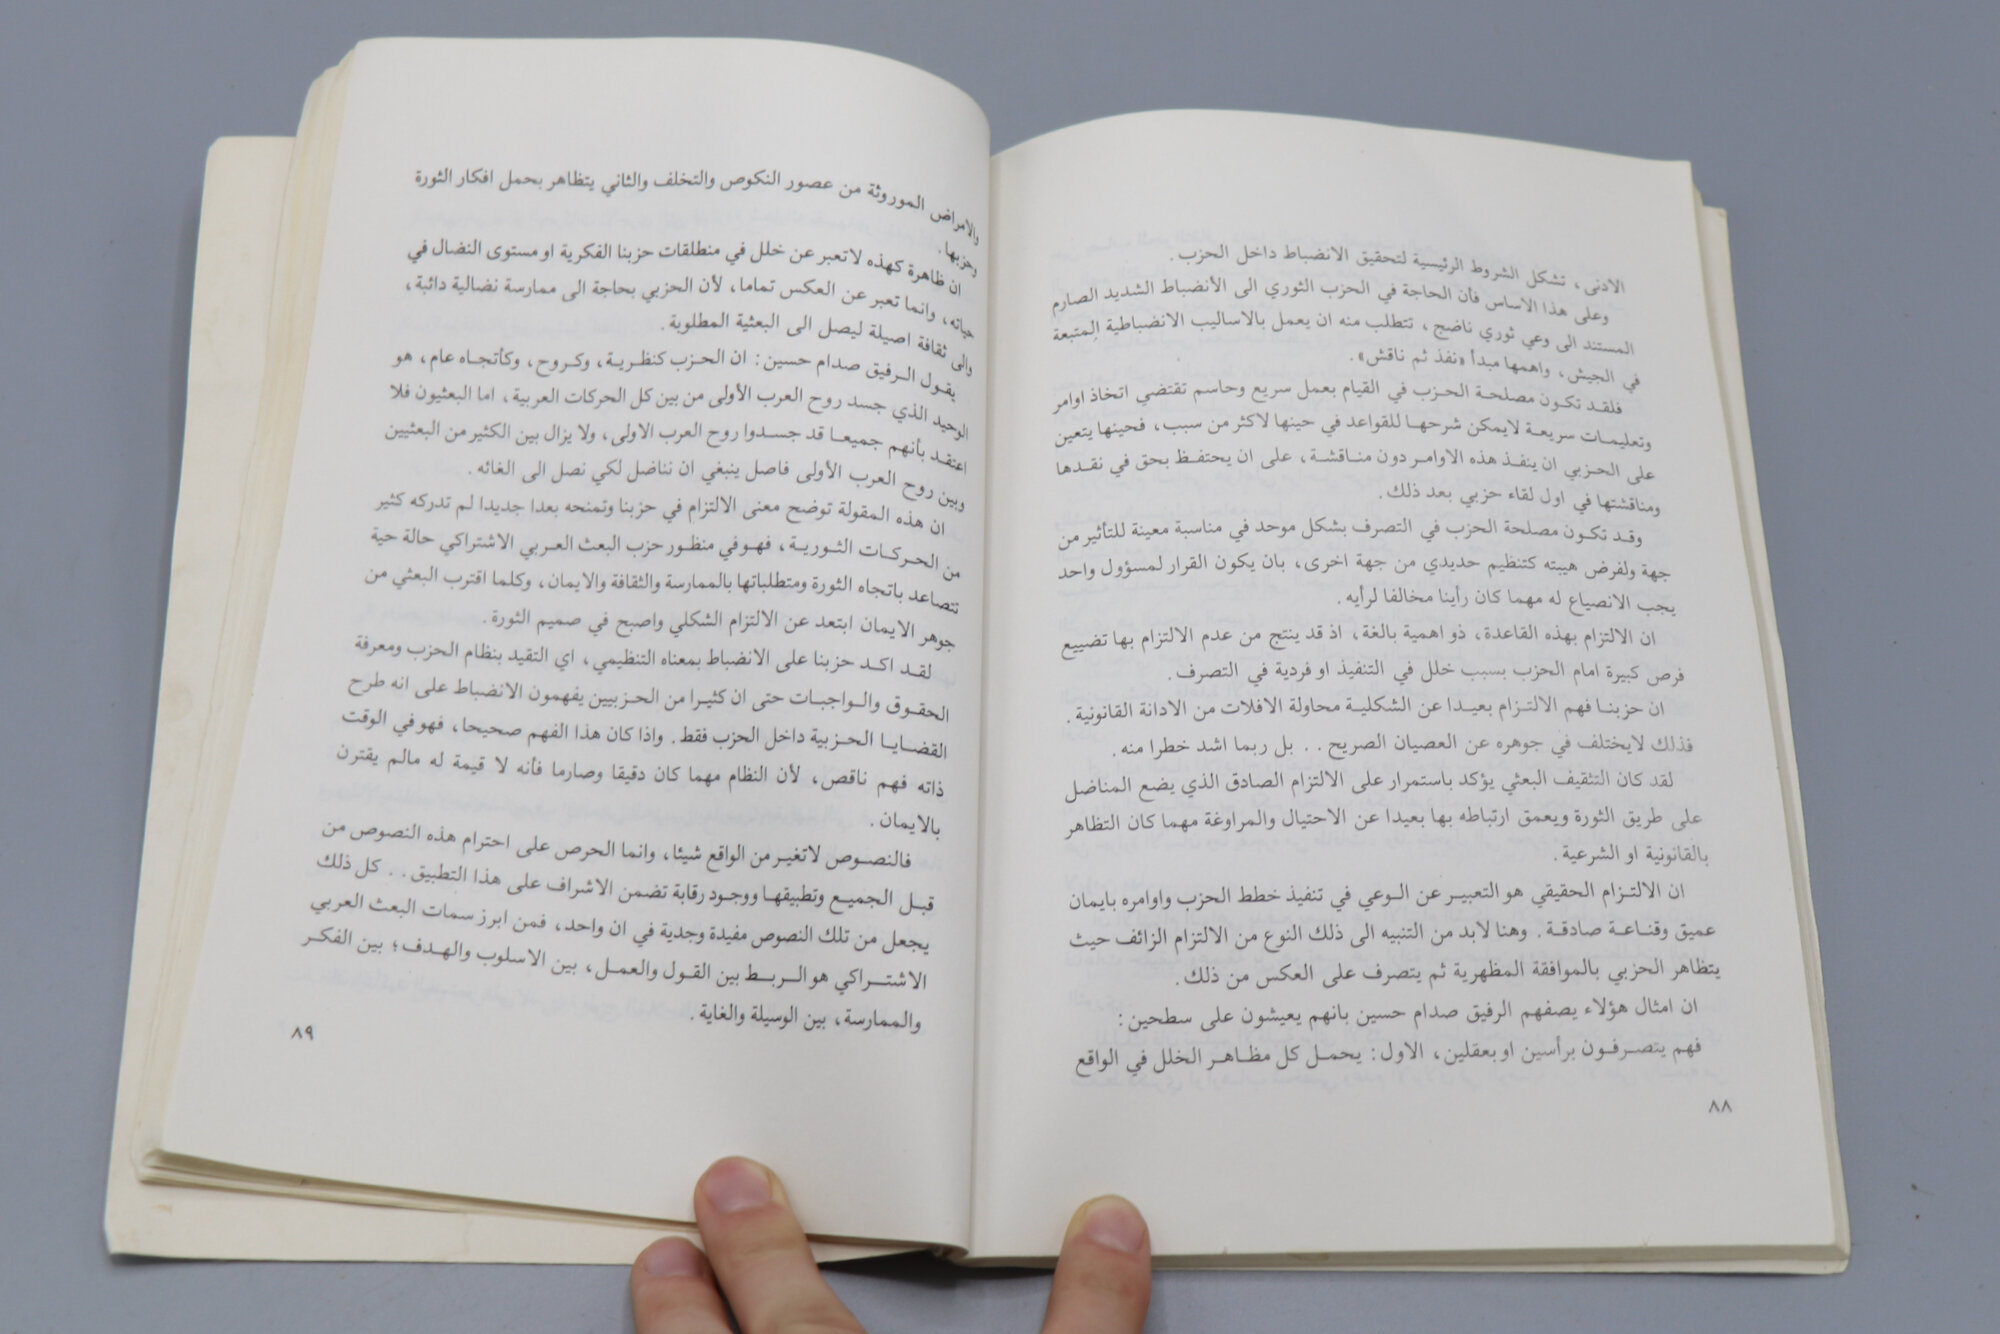 الادنى، تشكل الشروط الرئيسية لتحقيق الانضباط داخل الحزب.
وعلى هذا الاساس فأن الحاجة في الحزب الثوري الى الأنضباط الشديد الصارم
المستند الى وعي ثوري ناضج، تتطلب منه ان يعمل بالاساليب الانضباطية المتبعة
في الجيش، واهمها مبدأ «نفذ ثم ناقش».
فلقد تكون مصلحة الحزب في القيام بعمل سريع وحاسم تقتضي اتخاذ اوامر
وتعليمات سريعة لايمكن شرحها للقواعد في حينها لاكثر من سبب، فحينها يتعين
على الحزبي ان ينفذ هذه الاوامر دون مناقشة، على ان يحتفظ بحق في نقدها
ومناقشتها في اول لقاء حزبي بعد ذلك.
وقد تكون مصلحة الحزب في التصرف بشكل موحد في مناسبة معينة للتأثير من
جهة ولفرض هيبته كتنظيم حديدي من جهة اخرى، بان يكون القرار لمسؤول واحد
يجب الانصياع له مهما كان رأينا مخالفا لرأيه.
ان الالتزام بهذه القاعدة، ذو اهمية بالغة، اذ قد ينتج من عدم الالتزام بها تضييع
فرص كبيرة امام الحزب بسبب خلل في التنفيذ او فردية في التصرف.
ان حزبنا فهم الالتزام بعيدا عن الشكلية محاولة الافلات من الادانة القانونية.
فذلك لايختلف في جوهره عن العصيان الصريح . . بل ربما اشد خطرا منه.
لقد كان التثقيف البعثي يؤكد باستمرار على الالتزام الصادق الذي يضع المناضل
على طريق الثورة ويعمق ارتباطه بها بعيدا عن الاحتيال والمراوغة مهما كان التظاهر
بالقانونية او الشرعية.
ان الالتزام الحقيقي هو التعبير عن الوعي في تنفيذ خطط الحزب واوامره بايمان
عميق وقناعة صادقة. وهنا لابد من التنبيه الى ذلك النوع من الالتزام الزائف حيث
يتظاهر الحزبي بالموافقة المظهرية ثم يتصرف على العكس من ذلك.
ان امثال هؤلاء يصفهم الرفيق صدام حسين بانهم يعيشون على سطحين:
فهم يتصرفون برأسين او بعقلين، الاول: يحمل كل مظاهر الخلل في الواقع
٨٨
والامراض الموروثة من عصور النكوص والتخلف والثاني يتظاهر بحمل افكار الثورة
وحزبها.
ان ظاهرة كهذه لاتعبر عن خلل في منطلقات حزبنا الفكرية او مستوى النضال في
حياته، وانما تعبر عن العكس تماما، لأن الحزبي بحاجة الى ممارسة نضالية دائبة،
والى ثقافة اصيلة ليصل الى البعثية المطلوبة.
يقول الرفيق صدام حسين: ان الحزب كنظرية، وكروح، وكأتجاه عام، هو
الوحيد الذي جسد روح العرب الأولى من بين كل الحركات العربية، اما البعثيون فلا
اعتقد بأنهم جميعا قد جسدوا روح العرب الاولى، ولا يزال بين الكثير من البعثيين
وبين روح العرب الأولى فاصل ينبغي ان نناضل لكي نصل الى الغائه.
ان هذه المقولة توضح معنى الالتزام في حزبنا وتمنحه بعدا جديدا لم تدركه كثير
من الحركات الثورية، فهو في منظور حزب البعث العربي الاشتراكي حالة حية
تتصاعد باتجاه الثورة ومتطلباتها بالممارسة والثقافة والايمان، وكلما اقترب البعثي من
جوهر الايمان ابتعد عن الالتزام الشكلي واصبح في صميم الثورة.
لقد اكد حزبنا على الانضباط بمعناه التنظيمي، اي التقيد بنظام الحزب ومعرفة
الحقوق والواجبات حتى ان كثيرا من الحزبيين يفهمون الانضباط على انه طرح
القضايا الحزبية داخل الحزب فقط. واذا كان هذا الفهم صحيحا، فهو في الوقت
ذاته فهم ناقص، لأن النظام مهما كان دقيقا وصارما فأنه لا قيمة له مالم يقترن
بالايمان.
فالنصوص لاتغير من الواقع شيئا، وانما الحرص على احترام هذه النصوص من
قبل الجميع وتطبيقها ووجود رقابة تضمن الاشراف على هذا التطبيق. . كل ذلك
يجعل من تلك النصوص مفيدة وجدية في ان واحد، فمن ابرز سمات البعث العربي
الاشتراكي هو الربط بين القول والعمل، بين الاسلوب والهدف؛ بين الفكر
والممارسة، بين الوسيلة والغاية.
٨٩